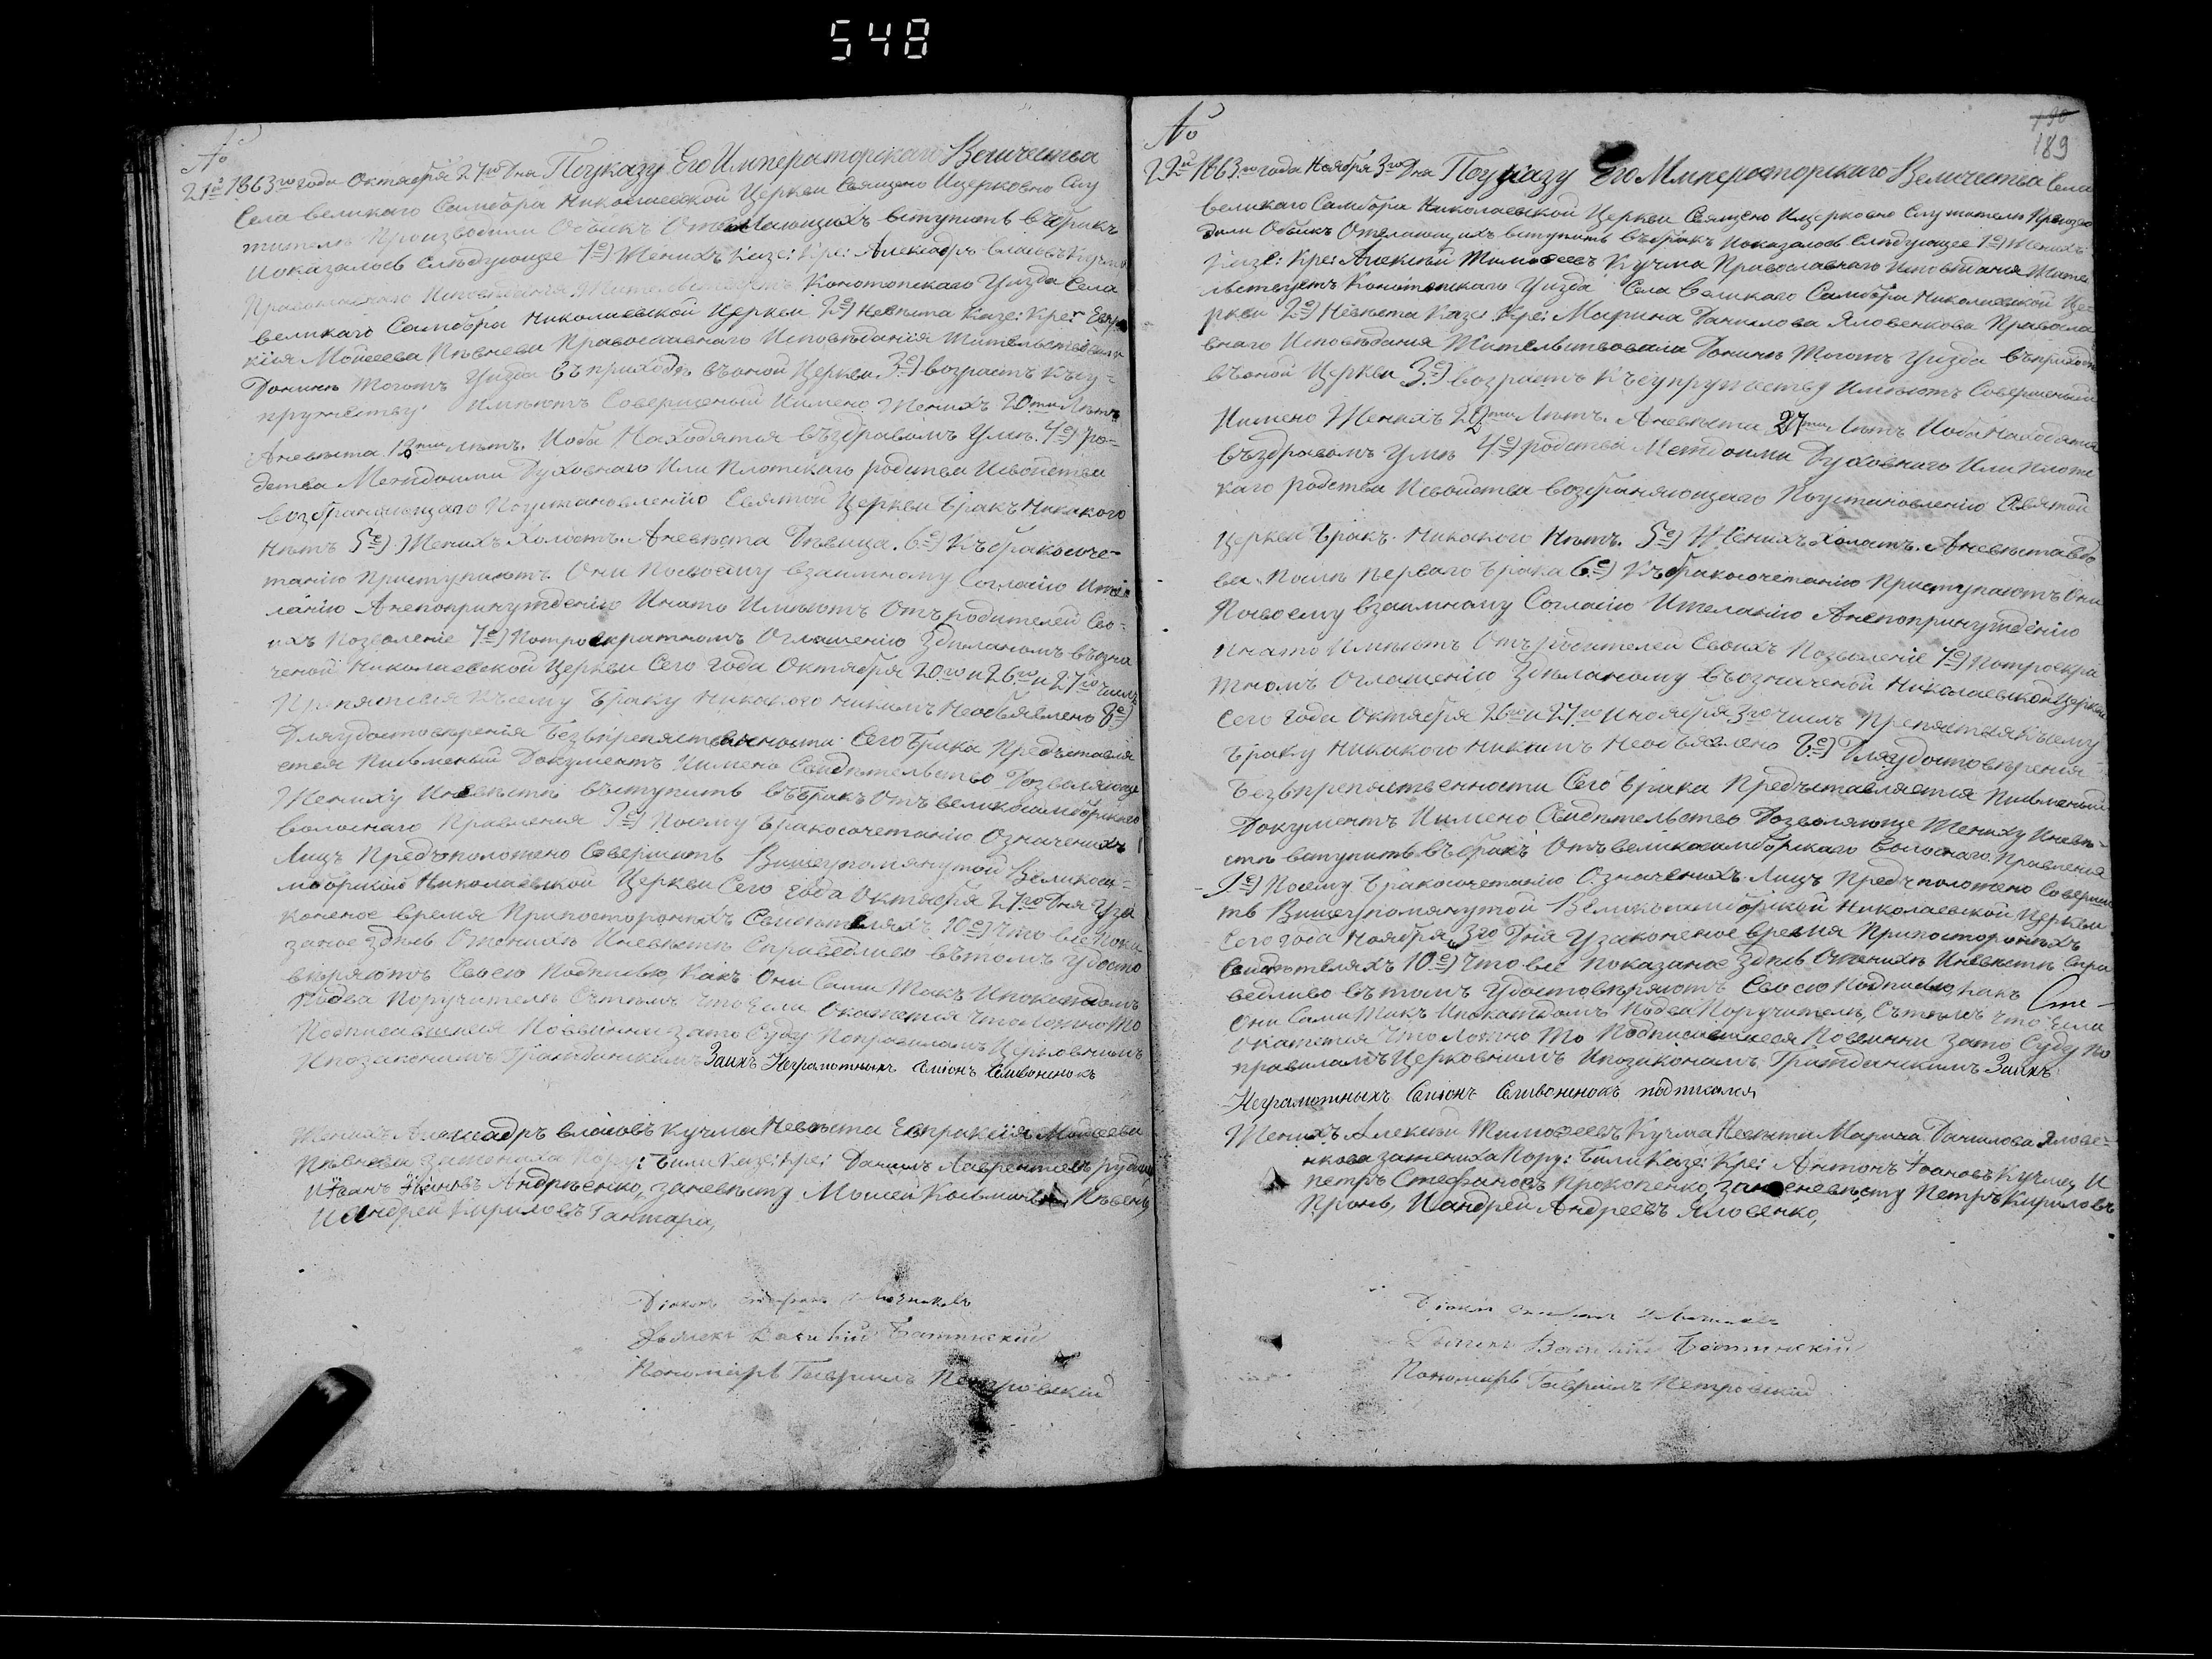 548
№
21й 1863го года Октября 27го Дня Поуказу Его Императорскаго Величества
Села великаго Самбора Николаевской Церкви Священо Ицерковно Слу
жители Производили Обыскъ Ожелающихъ вступить въбракъ
Иоказалось Слѣдующее 1е) Женихъ Казе: Кре: Алексадръ власовъ Кучма
Православнаго Исповѣданія Жительствуетъ Конотопскаго Уизда Села
великаго Самбора Николаевской Церкви 2е) Невѣста Казе: Кре: Евпра
кіія Моисеева Пѣвнева Православнаго Исповѣданія Жительствовала
Донинѣ Тогожъ Уизда въприходѣ въоной Церкви. 3е) возрастъ Късу-
пружеству Имѣютъ Совершеный Иимено Женихъ 20ти Лѣтъ
Аневѣста 18ти лѣтъ. Иоба Находятся въздравомъ Умѣ. 4е) ро-
дства Междоими Духовнаго Или Плотскаго родства Исвойства
возбраняющаго Поустановленію Святой Церкви Бракъ Никакого
Нѣтъ 5е) Женихъ Холостъ. Аневѣста Дѣвица. 6е) Къбракосоче-
танію Приступаютъ Они Посвоему взаимному Согласію Ижел
ланію Анепопринужденію Инато Имѣютъ Отъродителей Сво-
ихъ Позволеніе 7е) Потроекратномъ Оглашенію Здѣланомъ въозна
ченой Николаевской Церкви Сего года Октября 20го и 26го и 27го числъ
Препятсвія Къ сему Браку Никакого Никимъ Необявлено 8е)
Дляудостоверенія Безвпрепятственности Сего Брака Предъставля
ется Письменый Документъ Иимено Свидѣтельство Дозволяюще
Жениху Иневѣсти въступить въБракъ Отъ великосамборскаго
волоснаго Правленія 9е) Посему Бракосочетанію Означенихъ
Лицъ Предъположено Совершить Вишеупомянутой Великоса-
мборской Николаевской Церкви Сего года Октября 27го Дня Уза
коненое время Припосторонихъ Свидѣтеляхъ 10е) Что все Пока
заное здѣсь Оженихѣ Иневѣсти Справедливо вътомъ Удосто
вѣряютъ Своею Подписью, Какъ Они Сами Такъ Ипокаждомъ
Подва Поручителя Сътимъ Что Если Окажется Что Ложно То
Подписавшіеся Повинни Зато Суду Поправиламъ Церковнимъ
Ипозаконамъ Гражданскимъ Заихъ Неграмотныхъ Сѵміонъ Семвоненокъ
Женихъ Алексадръ власовъ Кучма Невѣста Евпракіія Моисеева
Пѣвнева Зажениха Пору: Били Казе: Кре: Данилъ Лаврентіевъ
Иіванъ Івановъ Андрѣенко, заневѣсту Моисей Пѣвень,
Иандрей Кириловъ Гантара,
Діаконъ
Дьячекъ Василій Батинскій
Пономарь Гавріилъ Петровскій
190
189
№
22й 1863го года Ноября 3го Дня Поуказу Его Императорскаго Величества Села
великаго Самбора Николаевской Церкви Священо Ицерковно Служители Произво
дили Обыскъ Ожелающихъ вступить въбракъ Иоказалось Слѣдующее 1е) Женихъ
Казе: Кре: Алексѣй Тимофеевъ Кучма Православнаго Исповѣданія Жите
льствуетъ Конотопскаго Уизда Села Великаго Самбора Николаевской Це-
ркви 2е) Невѣста Казе: Кре: Марина Данилова Яловенкова Правосла
внаго Исповѣданія Жительствовала Донинѣ Тогожъ Уизда въприходѣ
въоной Церкви 3е) возрастъ Къ супружеству Имѣютъ Совершеный
Иимено Женихъ 22ти Лѣтъ. Аневѣста 27ти Лѣтъ Иоба Находятся
въздравомъ Умѣ 4е) родства Междоими Духовнаго Или Плотс
каго родства Исвойства возбраняющаго Поустановленію Святой
Церкви Бракъ Никакого Нѣтъ. 5е) Женихъ Холостъ. Аневѣста вдо
ва. Послѣ Перваго Брака 6е) Къбракосочетанію Приступаютъ Они
Посвоему взаимному Согласію Ижеланію Анепопринужденію
Инато Имѣютъ Отъродителей Своихъ Позволеніе 7е) Потроекра
тномъ Оглашенію Здѣланому въозначеной Николаевской Церкви
Сего года Октября 26го и 27го Иноября 3го числъ Препятсвія Къ сему
Браку Никакого Никимъ Необъявлено 8е) Дляудостовѣренія
Безвпрепятственности Сего Брака Предъставляется Письменый
Документъ Иимено Свидѣтельство Дозволяюще Жениху Иневѣ-
сти вступить въбракъ Отъ великосамборскаго Волоснаго Правленія
9е) Посему Бракосочетанію Означенихъ Лицъ Предъположено Соверши
ть Вишеупомянутой Великосамборской Николаевской Церкви
Сего года Ноября 3го Дня Узаконеное время Припосторонихъ
Свидѣтеляхъ 10е) Что все Показаное здѣсь Оженихѣ Иневѣсти Спра
ведливо вътомъ Удостовѣряютъ Своею Подписью, Какъ
Они Сами Такъ Ипокаждомъ Подва Поручителя, Сътимъ Что Если
Окажется Что Ложно То Подписавшіеся Повинни Зато Суду По
правиламъ Церковнимъ Ипозаконамъ Гражданскимъ Заихъ
Неграмотныхъ Сѵміонъ Семвоненокъ подписался
Женихъ Алексѣй Тимофеевъ Кучма Невѣста Марина Данилова Яловe-
нкова зажениха Пору: Били Казе: Кре: Антонъ Івановъ Кучма, И
петръ Стефановъ Прокопенко, заневѣсту Петръ Кириловъ
Пронь, Иандрей Андреевъ Яловенко,
Діаконъ
Дьячекъ Василій Батинскій
Пономарь Гавріилъ Петровскій